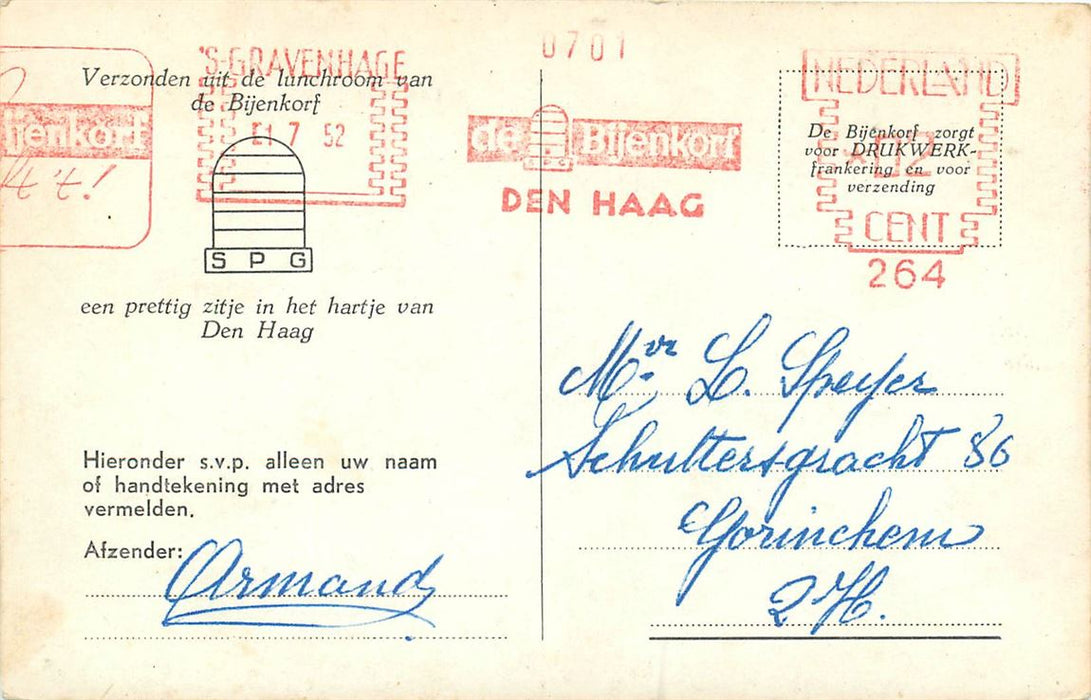 'S-GRAVENHAGE
0701
NEDERLAND
Verzonden uit de lunchroom van
de Bijenkorf
ijenkorf
't!
7 52
de Bijenkorf
DEN HAAG
De Bijenkorf zorgt
voor DRUKWERK-
frankering en voor
verzending
CENT
264
S P G
een prettig zitje in het hartje van
Den Haag
Mvr. L. Speyer
Schuttersgracht 86
Gorinchem
Z.H.
Hieronder s.v.p. alleen uw naam
of handtekening met adres
vermelden.
Afzender: Armand